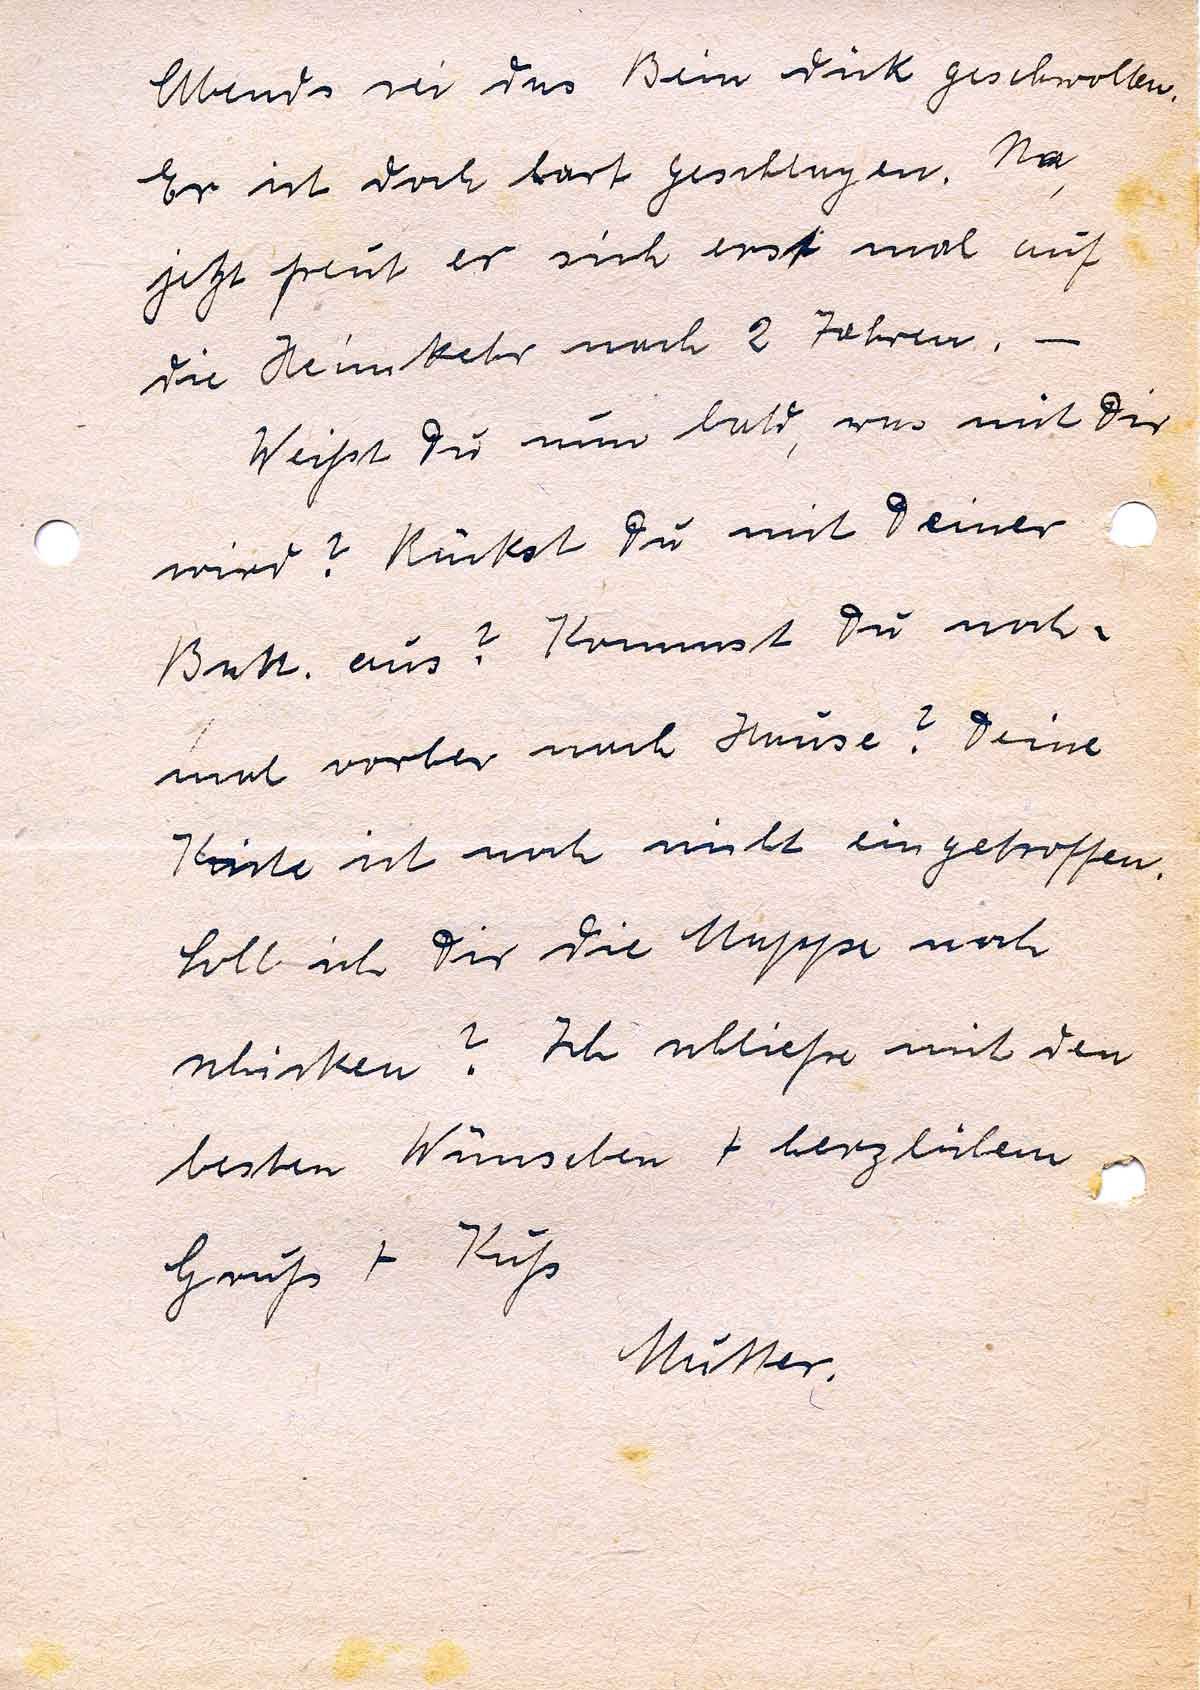 Abends sei das Bein dick geschwollen.
Er ist doch hart geschlagen. Na,
jetzt freut er sich erst mal auf
die Heimkehr nach 2 Jahren. —
Weißt Du nun bald, was mit Dir
wird? Rückst Du mit Deiner
Batt. aus? Kommst Du noch-
mal vorher nach Hause? Deine
Kiste ist noch nicht eingetroffen.
Soll ich Dir die Mappe noch
schicken? Ich schließe mit den
besten Wünschen + herzlichem
Gruß + Kuß
Mutter.